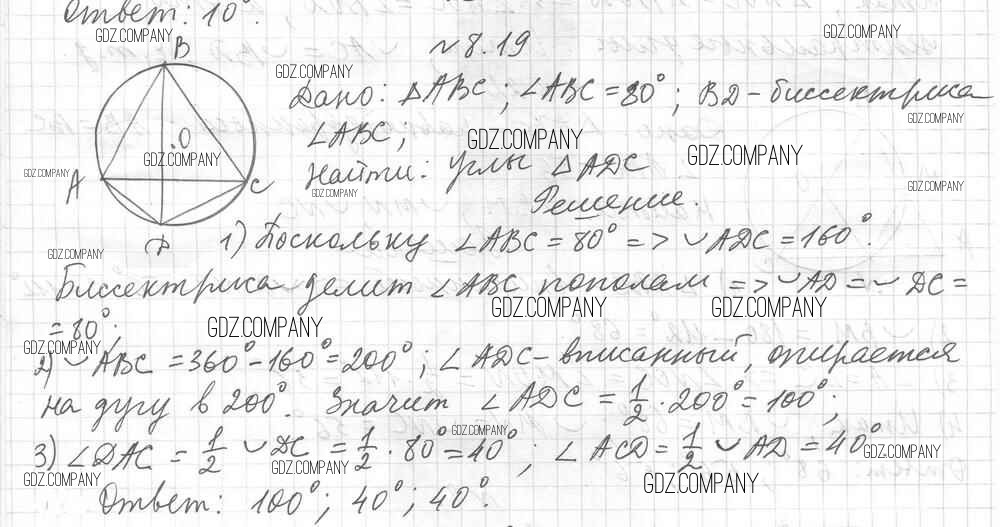 Ответ: 10°.
№ 8.19
B
A
C
.O
D
Дано: △ABC; ∠ABC = 80°; BD - биссектриса
∠ABC;
Найти: углы △ADC
Решение.
1) Поскольку ∠ABC = 80° => ◡ADC = 160°.
Биссектриса делит ∠ABC пополам => ◡AD = ◡DC =
= 80°;
2) ◡ABC = 360° - 160° = 200°; ∠ADC - вписанный, опирается
на дугу в 200°. Значит ∠ADC = 1/2 · 200° = 100°;
3) ∠DAC = 1/2 ◡DC = 1/2 · 80° = 40°; ∠ACD = 1/2 ◡AD = 40°
Ответ: 100°; 40°; 40°.
GDZ.COMPANY
GDZ.COMPANY
GDZ.COMPANY
GDZ.COMPANY
GDZ.COMPANY
GDZ.COMPANY
GDZ.COMPANY
GDZ.COMPANY
GDZ.COMPANY
GDZ.COMPANY
GDZ.COMPANY
GDZ.COMPANY
GDZ.COMPANY
GDZ.COMPANY
GDZ.COMPANY
GDZ.COMPANY
GDZ.COMPANY
GDZ.COMPANY
GDZ.COMPANY
GDZ.COMPANY
GDZ.COMPANY